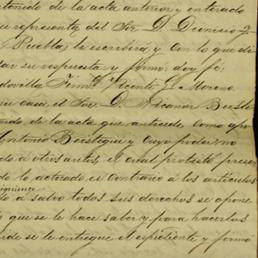 tenido de la acta anterior y enterado
su representa del Sor. D. Dionisio
Puebla, la escribira, y con lo que di
tar su respuesta y firmó: doy fé.
dovilla Firmo Vicente G. Moreno
su casa el Sor. D. Nicanor Beistegui
do de la acta que antecede como apo
Antonio Beistegui y cuyo poder
do a otros autos, el cual protesta presen
do lo actuado es contrario a los articulos
siguiente
do a salvo todos sus derechos se opone
lo que se le hace saber y para hacerlos
se le entregue el espediente y firmó